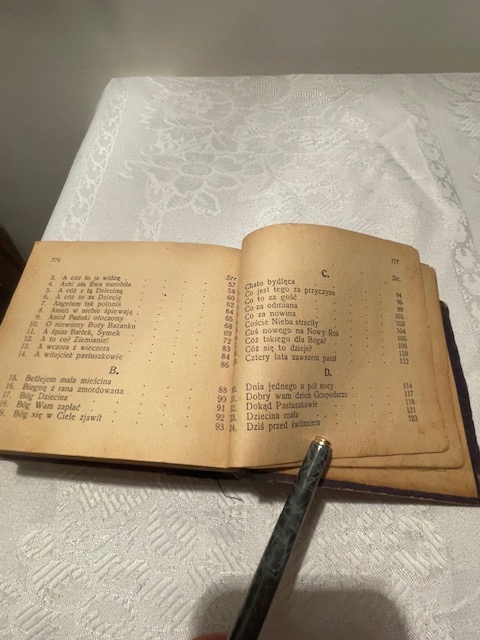 776
Str.
3. A cóż to ja widzę 57
4. Ach! zła Ewa narobiła 58
5. A cóż z tą Dzieciną 60
6. A cóż to za Dziecię 62
7. Angelom tak polonis 64
8. Anieli w niebie śpiewają 65
9. Anioł Pański otoczony 68
10. O niewinny Boży Baranku 69
11. A śpisz Bartek, Symek 72
12. A to co? Ziemianie! 83
13. A wczora z wieczora 84
14. A witajcież pastuszkowie 86
B.
15. Betlejem mała mieścina 88
16. Biegnę z rana zmordowana 90
17. Bóg Dziecina 91
18. Bóg Wam zapłać 92
Bóg się w Ciele zjawił 93
777
C.
Str.
Chato bydlęca 94
Co jest tego za przyczyna 96
Co to za gość 98
Co za odmiana 99
Co za nowina 101
Coście Nieba straciły 103
Coś nowego na Nowy Rok 104
Cóż takiego dla Boga? 105
Cóż się to dzieje? 109
Cztery lata zawszem pasał 110
112
D.
Dnia jednego o pół nocy 114
Dobry wam dzień Gospodarzu 117
Dokąd Pastuszkowie 118
Dziecina mała 121
Dziś przed świtaniem 123